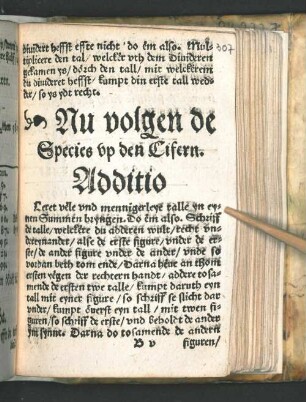 diuidert heffst effte nicht / do em also. Mul-
tiplicere den tal / welcker vth dem Diuideren
gekamen ys / dörch den tall / mit welckerem
du diuideret heffst / kumpt din erste tall wed-
der / so ys ydt recht.
307
Nu volgen de
Species vp den Cifern.
Additio
Leret vele vnd mennigerleye talle yn ey-
nen Summen bryngen. Do em also. Schriff
de talle / welckere du adderen wilt / recht vn-
derenander / alse de erste figure / vnder de er-
ste / de ander figure vnder de ander / vnde so
vordan beth tom ende / Darna heue an thom
ersten yegen der rechtern handt / addere tosa-
mende de ersten twe talle / kumpt daruth eyn
tall mit eyner figure / so schriff se slicht dar
vnder / kumpt överst eyn tall / mit twen fi-
guren / so schriff de erste / vnd beholdt de ander
ym synne. Darna do tosamende de andern
B v
figuren /